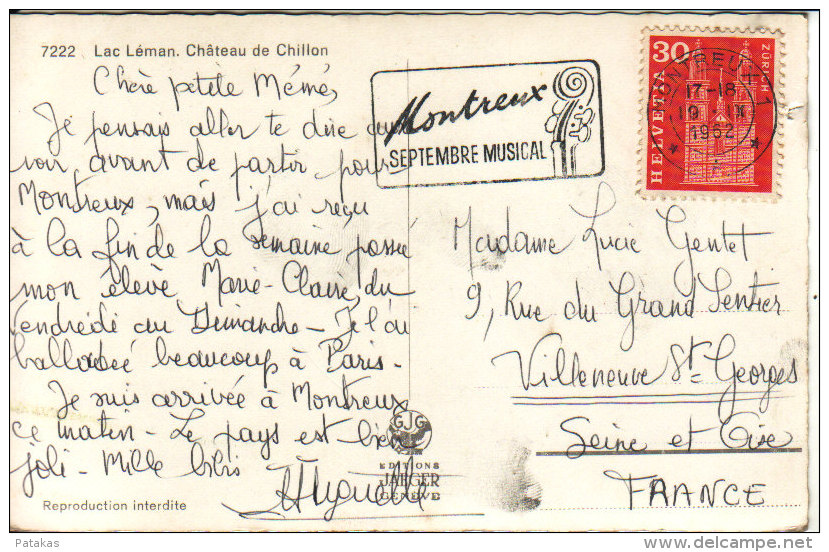 7222 Lac Léman. Château de Chillon
Chère petite Mémé,
Je pensais aller te dire au
voir avant de partir pour
Montreux, mais j'ai reçu
à la fin de la semaine passée
mon élève Marie-Claire, du
Vendredi au Dimanche - Je l'ai
balladée beaucoup à Paris -
Je suis arrivée à Montreux
ce matin - Le pays est bien
joli - Mille bibis
Huguette
Reproduction interdite
Montreux
SEPTEMBRE MUSICAL
30
HELVETIA
ZÜRICH
MONTREUX 1
17-18
1962
Madame Lucie Gentet
9, Rue du Grand Sentier
Villeneuve St Georges
Seine et Oise
FRANCE
GJG
EDITIONS
JAEGER
GENÈVE
Patakas
delcampe.net